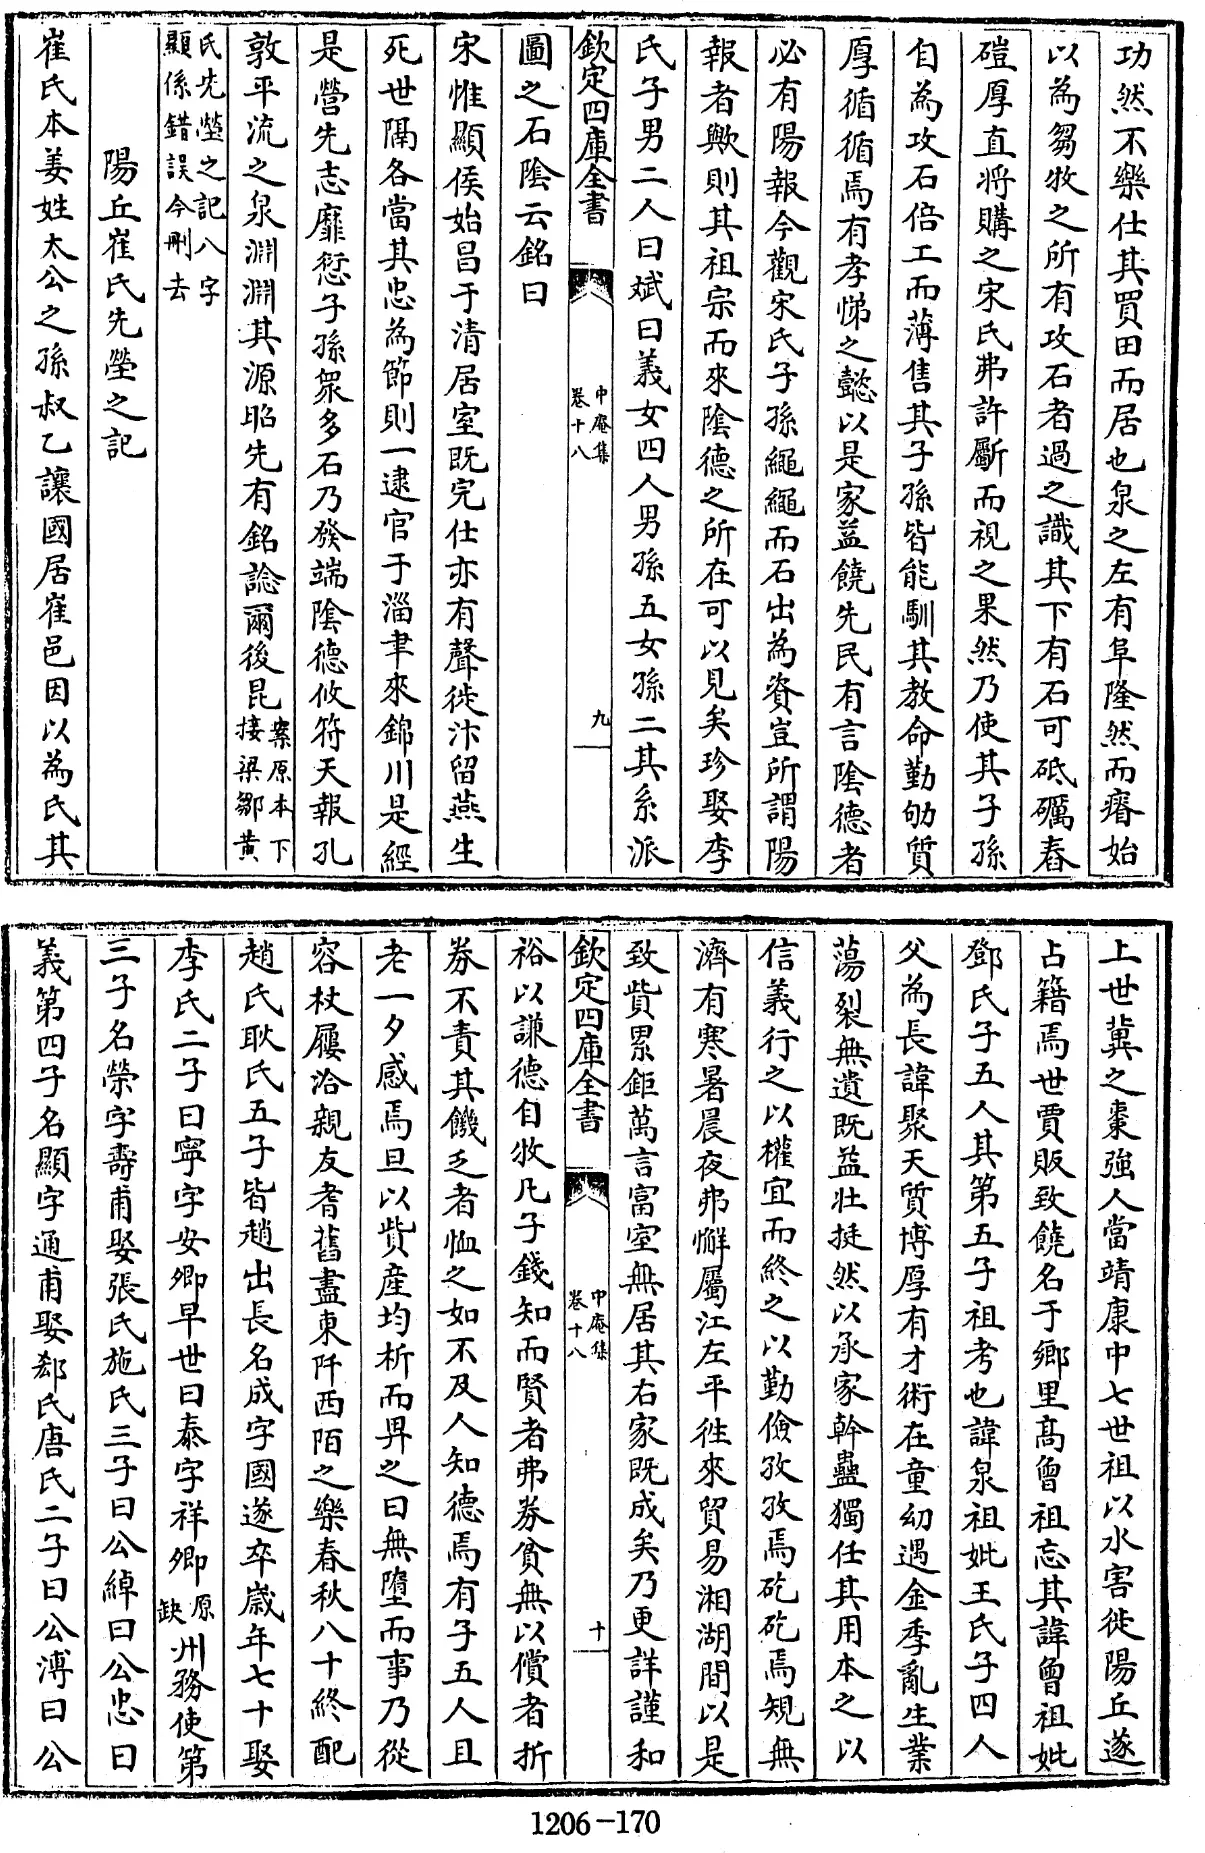 功然不樂仕其買田而居也泉之左有阜隆然而瘠始
以為芻牧之所有攻石者過之識其下有石可砥礪舂
磑厚直將購之宋氏弗許斸而視之果然乃使其子孫
自為攻石倍工而薄售其子孫皆能馴其教命勤劬質
厚循循焉有孝悌之懿以是家益饒先民有言陰德者
必有陽報今觀宋氏子孫繩繩而石出為資豈所謂陽
報者歟則其祖宗而來陰德之所在可以見矣珍娶李
氏子男二人曰斌曰義女四人男孫五女孫二其系派
欽定四庫全書
中庵集
卷十八
九
圖之石陰云銘曰
宋惟顯侯始昌于清居室既完仕亦有聲徙汴留燕生
死世隔各當其忠為節則一逮官于淄聿來錦川是經
是營先志靡愆子孫衆多石乃發端陰德攸符天報孔
敦平流之泉淵淵其源昭先有銘諗爾後昆案原本下
接梁鄒黄
氏先塋之記八字
顯係錯誤今刪去
陽丘崔氏先塋之記
崔氏本姜姓太公之孫叔乙讓國居崔邑因以為氏其
上世冀之棗強人當靖康中七世祖以水害徙陽丘遂
占籍焉世賈販致饒名于鄉里高曾祖忘其諱曾祖妣
鄧氏子五人其第五子祖考也諱泉祖妣王氏子四人
父為長諱聚天質博厚有才術在童幼遇金季亂生業
蕩裂無遺既益壯挺然以承家幹蠱獨任其用本之以
信義行之以權宜而終之以勤儉孜孜焉矻矻焉規無
濟有寒暑晨夜弗懈屬江左平徃來貿易湘湖間以是
致貲累鉅萬言富室無居其右家既成矣乃更詳謹和
欽定四庫全書
中庵集
卷十八
十
裕以謙德自牧凡子錢知而賢者弗劵貧無以償者折
劵不責其饑乏者恤之如不及人知德焉有子五人且
老一夕感焉旦以貲産均析而畀之曰無墮而事乃從
容杖屨洽親友耆舊盡東阡西陌之樂春秋八十終配
趙氏耿氏五子皆趙出長名成字國遂卒嵗年七十娶
李氏二子曰寧字安卿早世曰泰字祥卿原缺州務使第
三子名榮字壽甫娶張氏施氏三子曰公綽曰公忠曰
義第四子名顯字通甫娶郄氏唐氏二子曰公溥曰公
1206-170